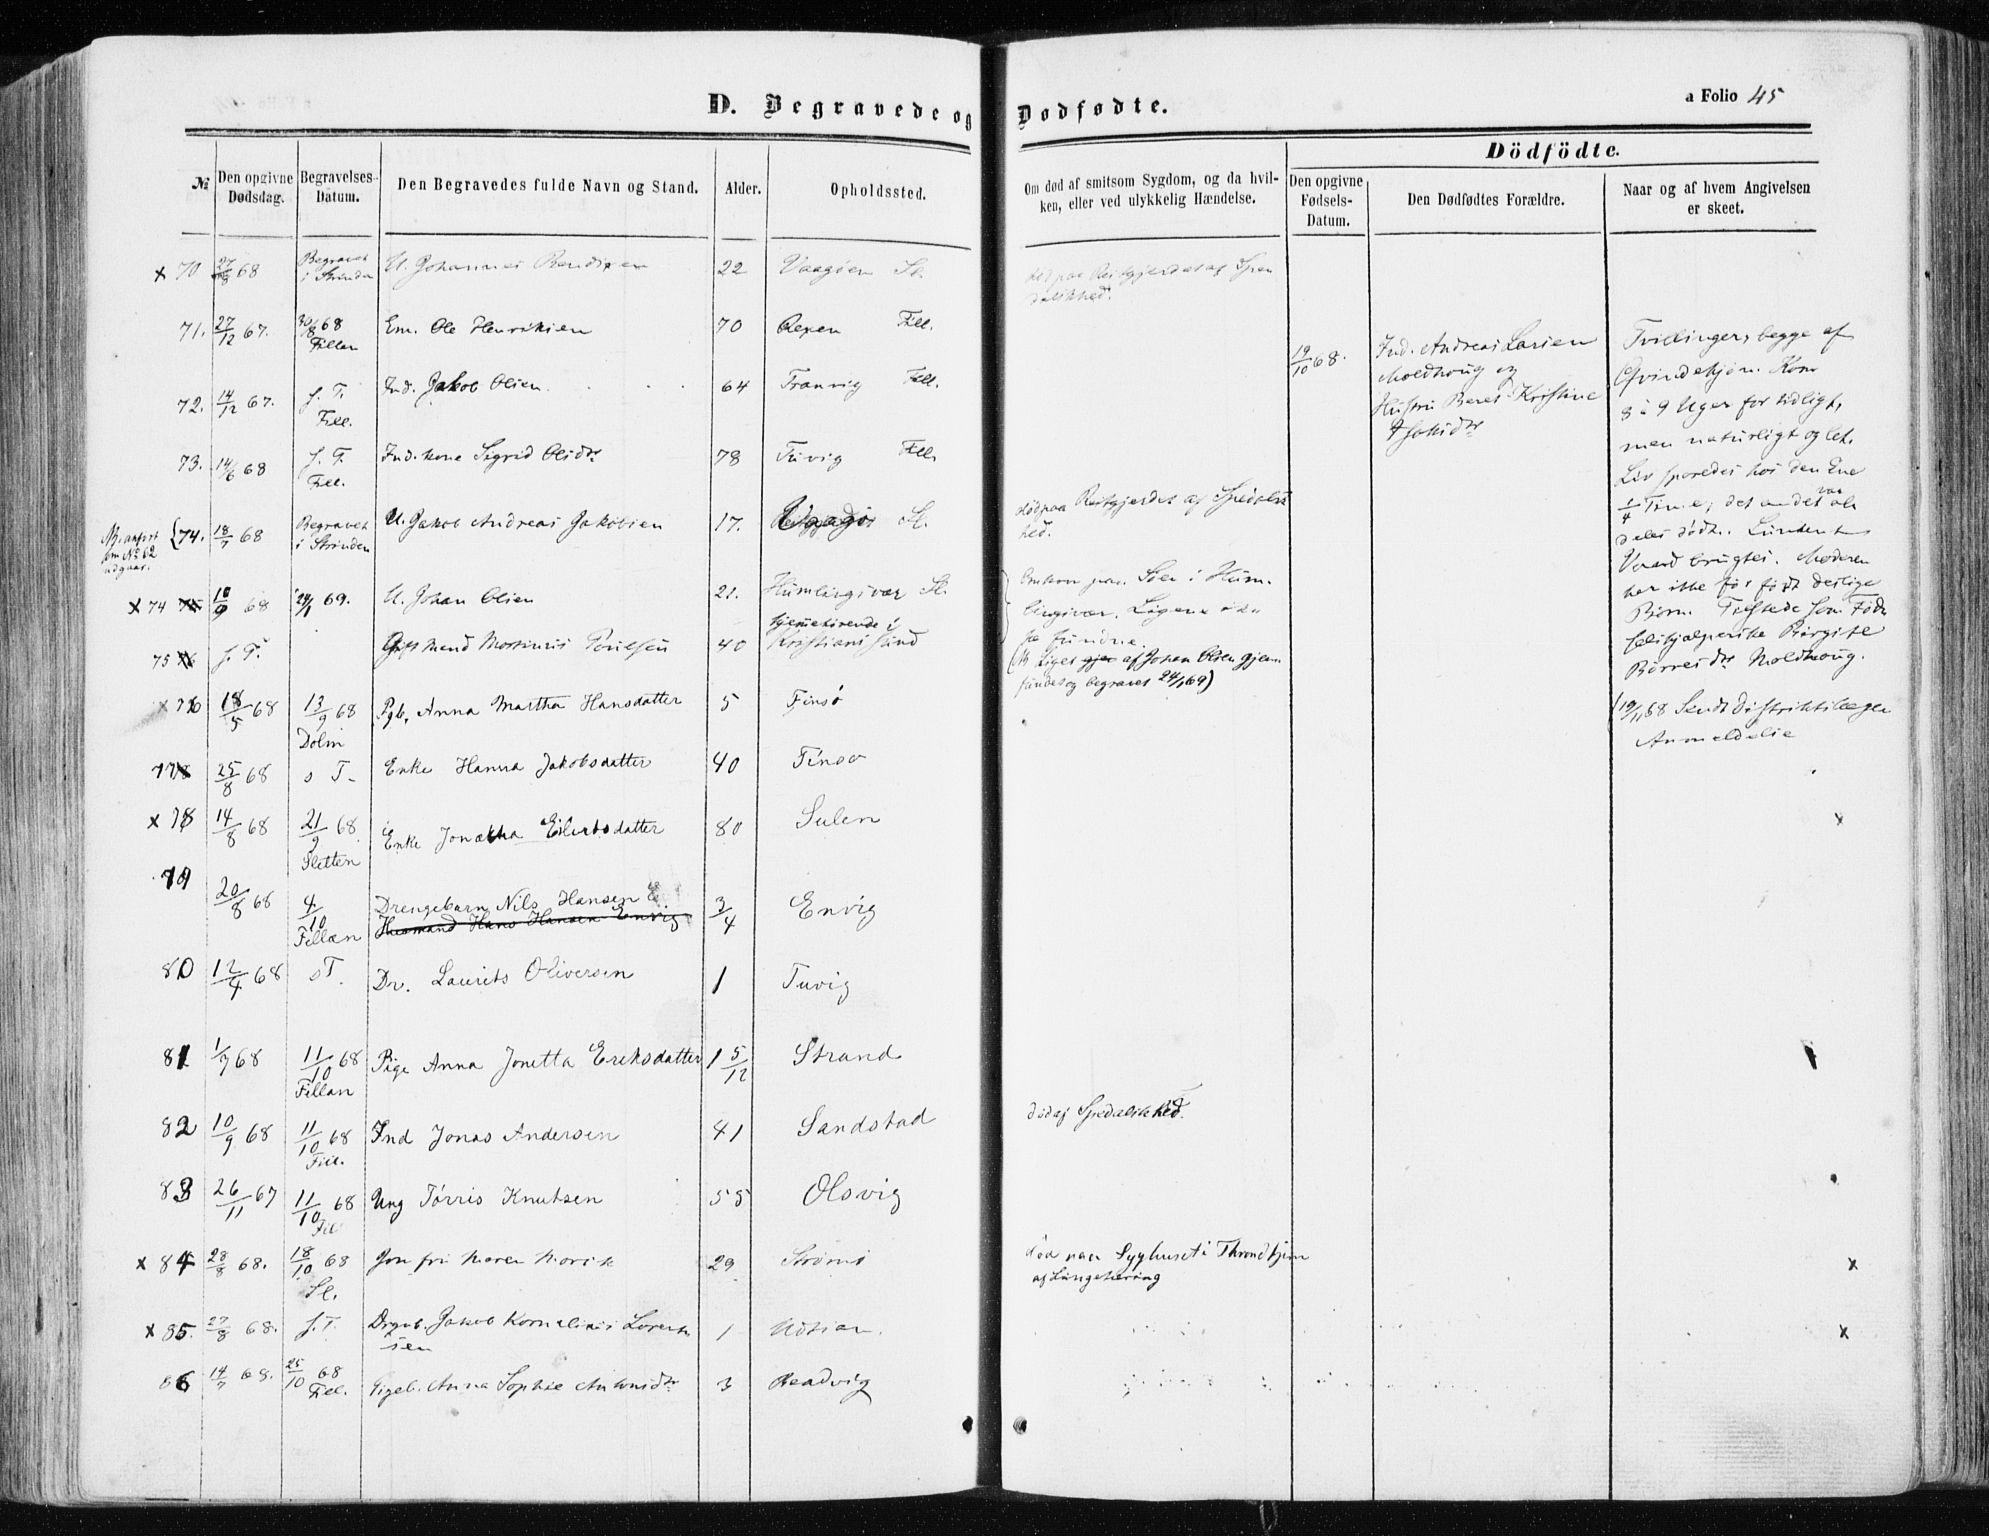 D. Begravede og Dødfødte.
a Folio 45
Dödfödte.
№
Den opgivne Dødsdag.
Begravelses-Datum.
Den Begravedes fulde Navn og Stand.
Alder.
Opholdssted.
Om død af smitsom Sygdom, og da hvil-
ken, eller ved ulykkelig Hændelse.
Den opgivne Fødsels-Datum.
Den Dødfødtes Forældre.
Naar og af hvem Angivelsen
er skeet.
x 70 27/8 68 Begravet i Strinden U. Johannes 22 Vaagøen Sl.
død paa Reitgjerdet af Spe-
dalskhed.
71. 27/12 67. 30/8 68 Fillan Em. Ole Henriksen 70 Rexen Fill.
72. 14/12 67. s. T. Fill. Ind. Jakob Olsen 64 Tranvig Fill.
73. 14/6 68 s. T. Fill. Ind. kone Sigrid Olsdtr 78 Tuvig Fill.
Nb. anført som No 62 udgaar.
74. 18/7 68 Begravet i Strinden U. Jakob Andreas Jakobsen 17. Vaagø Sl.
død paa Reitgjerdet af Spedalsk
hed.
x 74 10/9 68 24/1 69. U. Johan Olsen 21. Humlingsvær Sl.
Omkom paa Søen i Hum-
lingsvær. Ligene ikke
fundne.
75 s. T. Gift Mand Poulsen 40 hjemhørende i Kristiansund
(Nb Liget af Johan Olsen gjen-
fundet og begravet 24/1 69)
x 76 18/5 68 13/9 68 Dolm Pgb. Anna Martha Hansdatter 5 Finsø
77 25/8 68 s T. Enke Hanna Jakobsdatter 40 Finsø
x 78 14/8 68 21/9 68 Sletten Enke Jonetha Eilertsdatter 80 Sulen
79 20/8 68 4/10 Fillan Drengebarn Nils Hansen E. 3/4 Envig
Husmand Hans Hansen Envig
80 12/4 68 sT. Dr. Laurits Oliversen 1 Tuvig
81 1/7 68 11/10 68 Fillan Pige Anna Jonetta Eriksdatter 1 5/12 Strand
82 10/9 68 11/10 68 Fill. Ind Jonas Andersen 41 Sandstad
død af Spedalskhed.
83 26/11 67 11/10 68 Fil Ung Tørris Knutsen 55 Olsvig
x 84 28/8 68. 18/10 68 Sl. Jomfru Maren 29 Strøm
død paa Syghuset i Throndhjem
af Lungetæring
x
x 85. 27/8 68. s.T. Drgb. Jakob Kornelius Lorent-
sen 1
x
86 14/7 68. 25/10 68 Fill. Pigeb. Anna Sophie Antonsdtr 3 Readvig
19/10 68.
Ind. Andreas Larsen
Moldhoug og
Hustru Beret Kristine
Tvillinger, begge af
Qvindekjøn. Kom
8 à 9 Uger for tidligt,
men naturligt og let.
Liv sporedes hos den Ene
1/4 Time, det andet var al-
deles dødt.
brugtes. Moderen
har ikke før født deslige
Børn. Tilstede som Føds-
selshjælperske Birgitte
Børresdtr Moldhoug.
(19/11 68 Sendt Distriktslægen
Anmeldelse